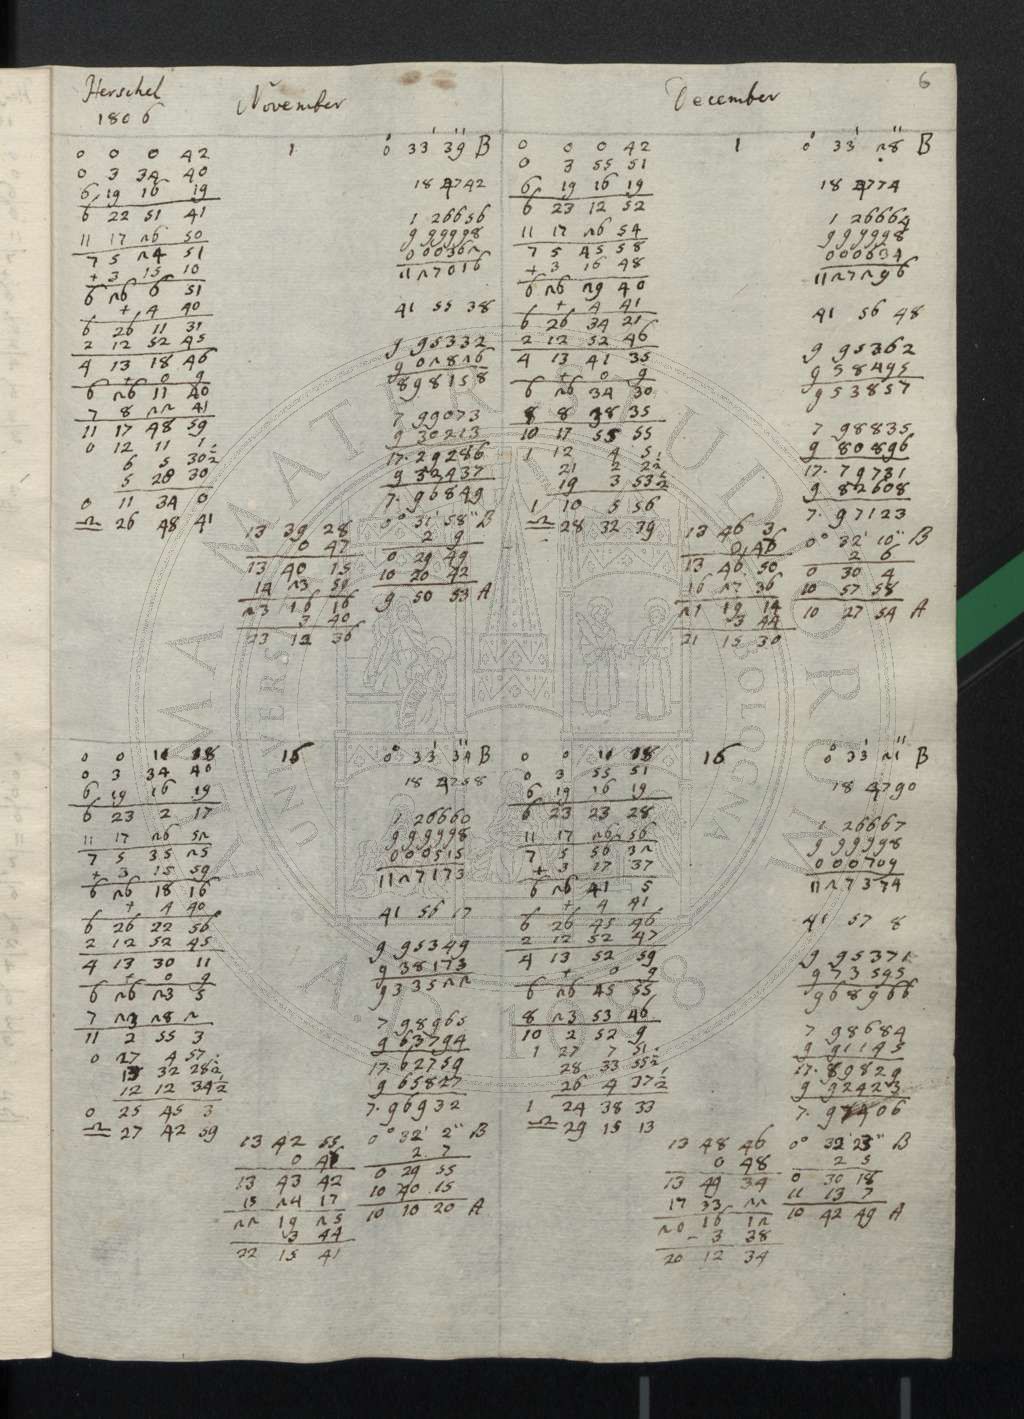 6
Herschel
1806
November
December
1
0 0 0 42
0 3 34 40
6 19 16 19
6 22 51 41
11 17 26 50
7 5 24 51
+ 3 15 10
6 26 6 51
+ 4 40
6 26 11 31
2 12 52 45
4 13 18 46
+ 0 9
6 26 11 40
7 8 22 41
11 17 48 59
0 12 11 1
6 5 30½
5 28 30
0 11 34 0
♎ 26 48 41
0° 33' 39" B
18 4742
1 26656
9 99998
000362
11 27016
41 55 38
9 95332
9 02826
8 98158
7 99073
9 30213
17. 29286
9 32437
7. 96849
13 39 28
0 47
13 40 15
23 16 16
3 40
23 12 36
0° 31' 58" B
2 9
0 29 49
10 20 42
9 50 53 A
1
0 0 0 42
0 3 55 51
6 19 16 19
6 23 12 52
11 17 26 54
7 5 45 58
+ 3 16 48
6 26 29 40
+ 4 41
6 26 34 21
2 12 52 46
4 13 41 35
+ 0 9
6 26 34 30
8 8 38 35
10 17 55 55
1 12 4 5
21 2 2½
19 3 53½
1 10 5 56
♎ 28 32 39
0° 33' 28" B
18 4774
1 26664
9 99998
000634
11 27296
41 56 48
9 95362
9 58495
9 53857
7 98835
9 80896
17. 79731
9 82608
7. 97123
13 46 3
0 46
13 46 50
16 27 36
21 19 14
3 44
21 15 30
0° 32' 10" B
2 6
0 30 4
10 57 58
10 27 54 A
16
0 0 11 18
0 3 34 40
6 19 16 19
6 23 2 17
11 17 26 52
7 5 35 25
+ 3 15 59
6 26 18 16
+ 4 40
6 26 22 56
2 12 52 45
4 13 30 11
+ 0 9
6 26 23 5
7 23 28 2
11 2 55 3
0 27 4 57
13 32 28½
12 12 34½
0 25 45 3
♎ 27 42 59
0° 33' 34" B
18 4758
1 26660
9 99998
000515
11 27173
41 56 17
9 95349
9 38173
9 33522
7 98965
9 63794
17. 62759
9 65827
7. 96932
13 42 55
0 47
13 43 42
15 24 17
22 19 25
3 44
22 15 41
0° 32' 2" B
2 7
0 29 55
10 40 15
10 10 20 A
16
0 0 11 18
0 3 55 51
6 19 16 19
6 23 23 28
11 17 26 56
7 5 56 32
+ 3 17 37
6 26 41 5
+ 4 41
6 26 45 46
2 12 52 47
4 13 52 59
+ 0 9
6 26 45 55
8 23 53 46
10 2 52 9
1 27 7 51
28 33 55½
26 4 37½
1 24 38 33
♎ 29 15 13
0° 33' 21" B
18 4790
1 26667
9 99998
000709
11 27374
41 57 8
9 95371
9 73595
9 68966
7 98684
9 91145
17. 89829
9 92423
7. 97406
13 48 46
0 48
13 49 34
17 33 22
20 16 12
- 3 38
20 12 34
0° 32' 23" B
2 5
0 30 18
11 13 7
10 42 49 A
ALMA MATER STUDIORUM
UNIVERSITÀ DI BOLOGNA
A.D. 1088